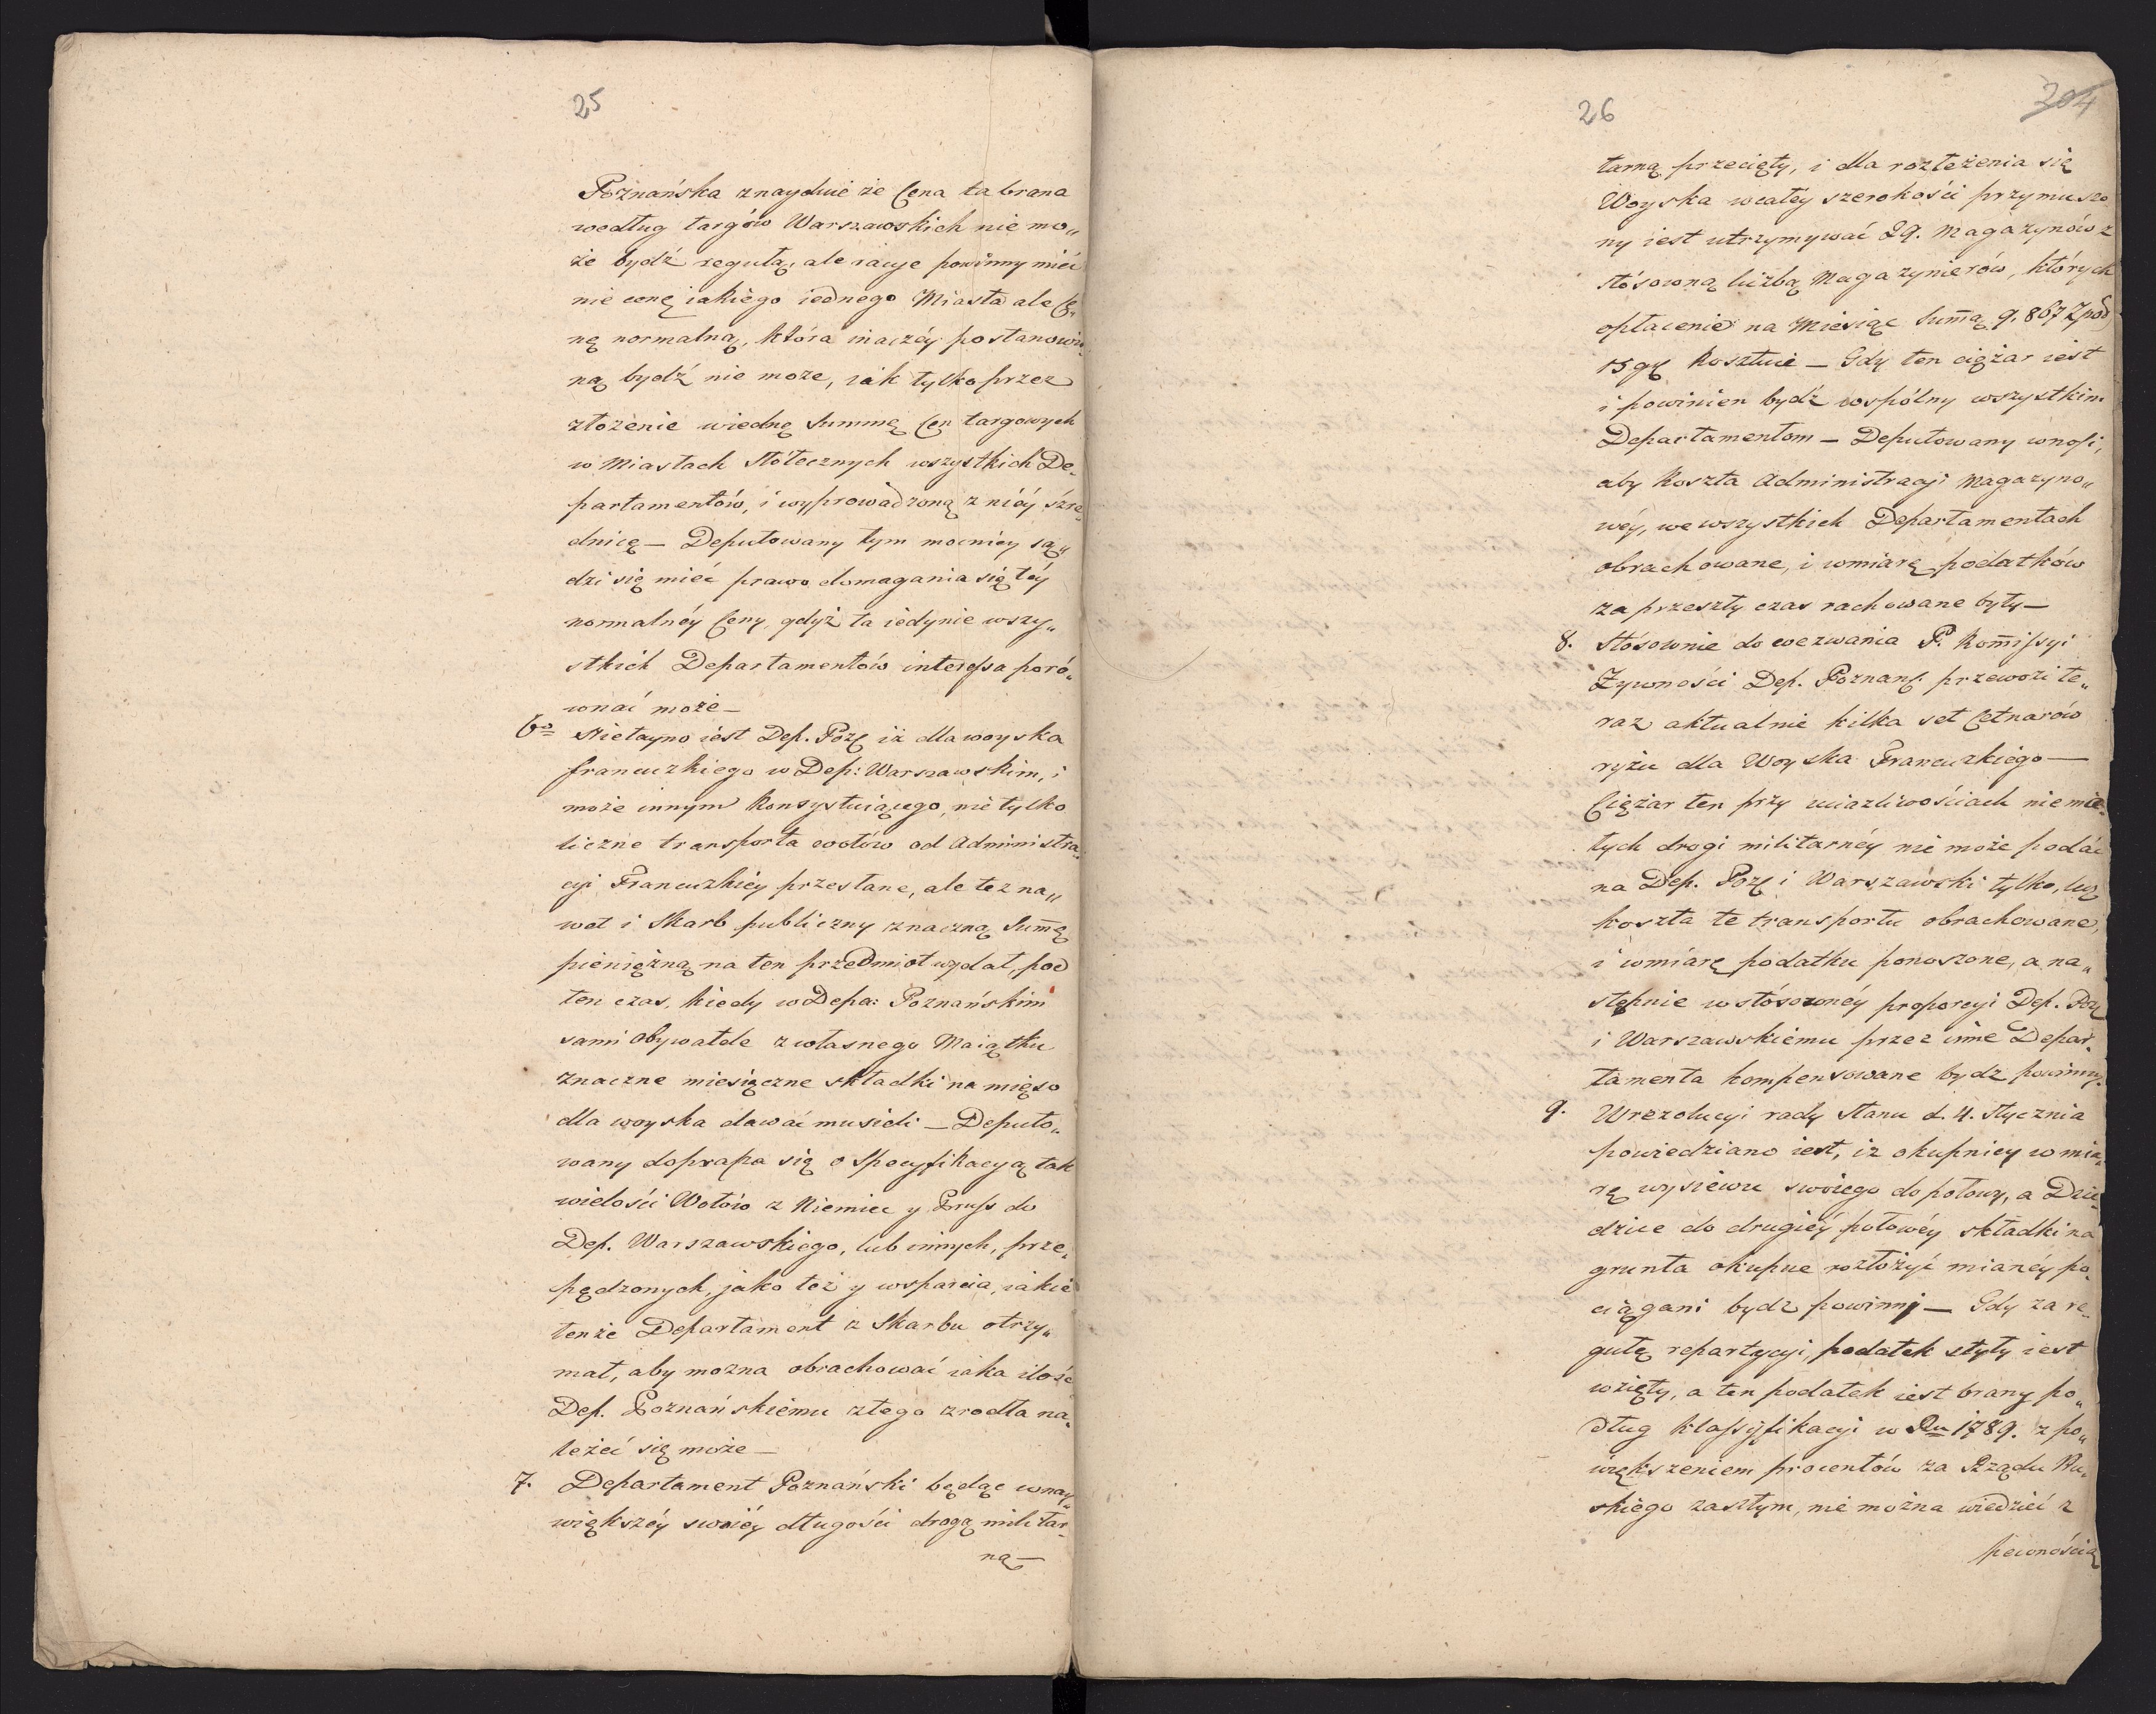 25
Poznańska znayduie że Cena ta brana
według targów Warszawskich nie mo„
że bydź regułą, ale racye powinny mieć
nie cenę iakiego iednego Miasta ale Ce„
nę normalną, która inaczéy postanowio„
ną bydź nie może, iak tylko przez
złożenie wiednę Summę Cen targowych
w Miastach Stołecznych wszystkich De„
partamentów, i wyprowadzoną z niéy śrze„
dnicę — Deputowany tym mocniey są„
dzi się mieć prawo domagania się téy
normalnéy Ceny, gdyż ta iedynie wszy„
stkich Departamentów interessa poró„
wnać może —
6to Nietayno iést Dep. Poz: iż dla woyska
francuzkiego w Dep: Warszawskim, i
może innym konsystuiącego, nie tylko
liczne transporta wołów od Administra„
cyi Francuzkiey przesłane, ale też na„
wet i Skarb publiczny znaczną Sum̄ę
pieniężną na ten przedmiot wydał, pod
ten czas, kiedy w Depa: Poznańskim
sami Obywatele z własnego Maiątku
znaczne miesięczne składki na mięso
dla woyska dawać musieli — Deputo„
wany doprasza się o Specyfikacyą tak
wielości Wołów z Niemiec y Pruss do
Dep. Warszawskiego, lub innych, prze„
pędzonych, jako też y wsparcia, iakie
tenże Departament z Skarbu otrzy„
mał, aby można obrachować iaka ilość
Dep. Poznańskiemu ztego zrodła na„
leżeć się może —
7. Departament Poznański będąc w nay„
większéy swoiéy długości drogą militar„
ną —
26
204
tarną przecięty, i dla rozłeżenia się
Woyska wcałéy szerokości przymuszo
ny iest utrzymywać 29. Magazynów z
stósowną liczbą Magazynierów, których
opłacenie na Miesiąc Sum̄ą 9.867 Zpod
15 gr kosztuie — Gdy ten ciężar iest
i powinien bydź wspólny wszystkim
Departamentom — Deputowany wnosi,
aby koszta Administracyi Magazyno„
wéy, we wszystkich Departamentach
obrachowane, i wmiarę podatków
za przeszły czas rachowane były —
8. Stósownie do wezwania P. Kom̄issyi
Żywności Dep. Poznańs: przewozi te„
raz aktualnie kilka set Cetnarów
ryżu dla Woyska Francuzkiego —
Ciężar ten przy uciazliwościach niemia„
łych drogi militarnéy nie może podać
na Dep. Poz: i Warszawski tylko, lecz
koszta te transportu obrachowane,
i wmiarę podatku ponoszone, a na„
stępnie w stósowanéy proporcyi Dep. Poz:
i Warszawskiemu przez inne Depar„
tamenta kompensowane bydz powinny.
9. W rezolucyi rady Stanu d. 4. Stycznia
powiedziano iest, iż okupnicy w mia„
rę wysiewu swoiego do połowy, a Dzie„
dzice do drugiéy połowéy składki na
grunta okupne rozłożyć mianéy po„
ciągani bydz powinni — Gdy za re„
gułę repartycyi, podatek stały iest
wzięty, a ten podatek iest brany po„
dług klassyfikacyi w Ru 1789. z po„
większeniem procentów za Rządu Pru„
skiego zaszłym, nie można wiedzieć z
pewnością